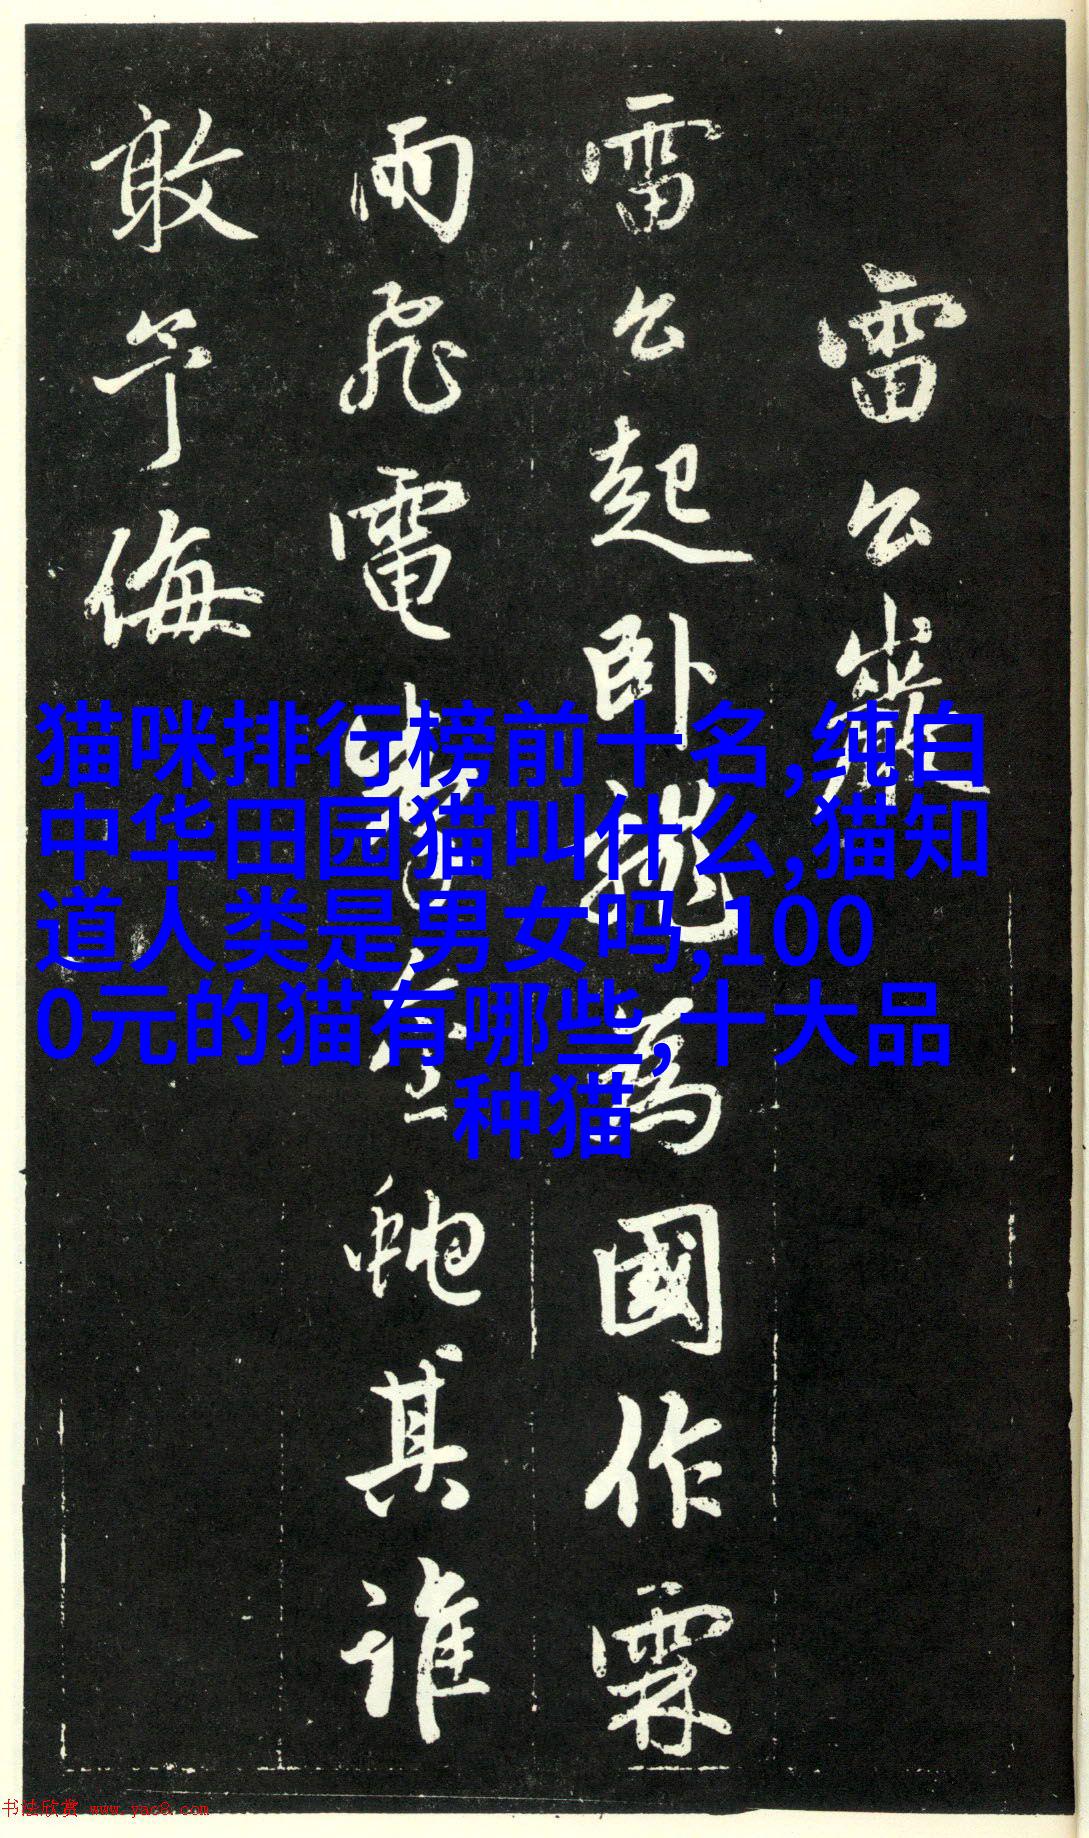 雷公巖
雷公起卧龍為國作霖
雨飛電掣金蛇其誰
敢予侮
猫咪排行榜前十名,纯白
中华田园猫叫什么,猫知
道人类是男女吗,100
0元的猫有哪些,十大品
种猫
书法欣赏 www.yac8.com